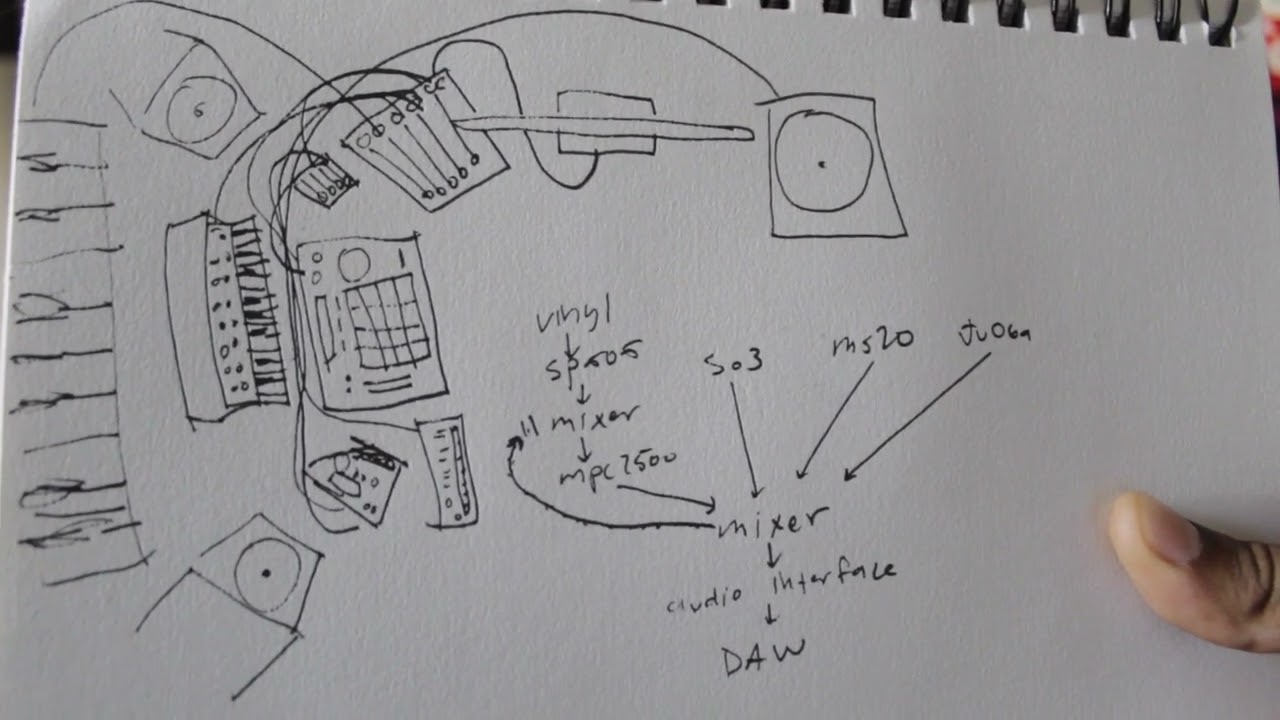 vinyl
sp505
mixer
mpc2500
so3
ms20
ju06a
mixer
audio interface
DAW